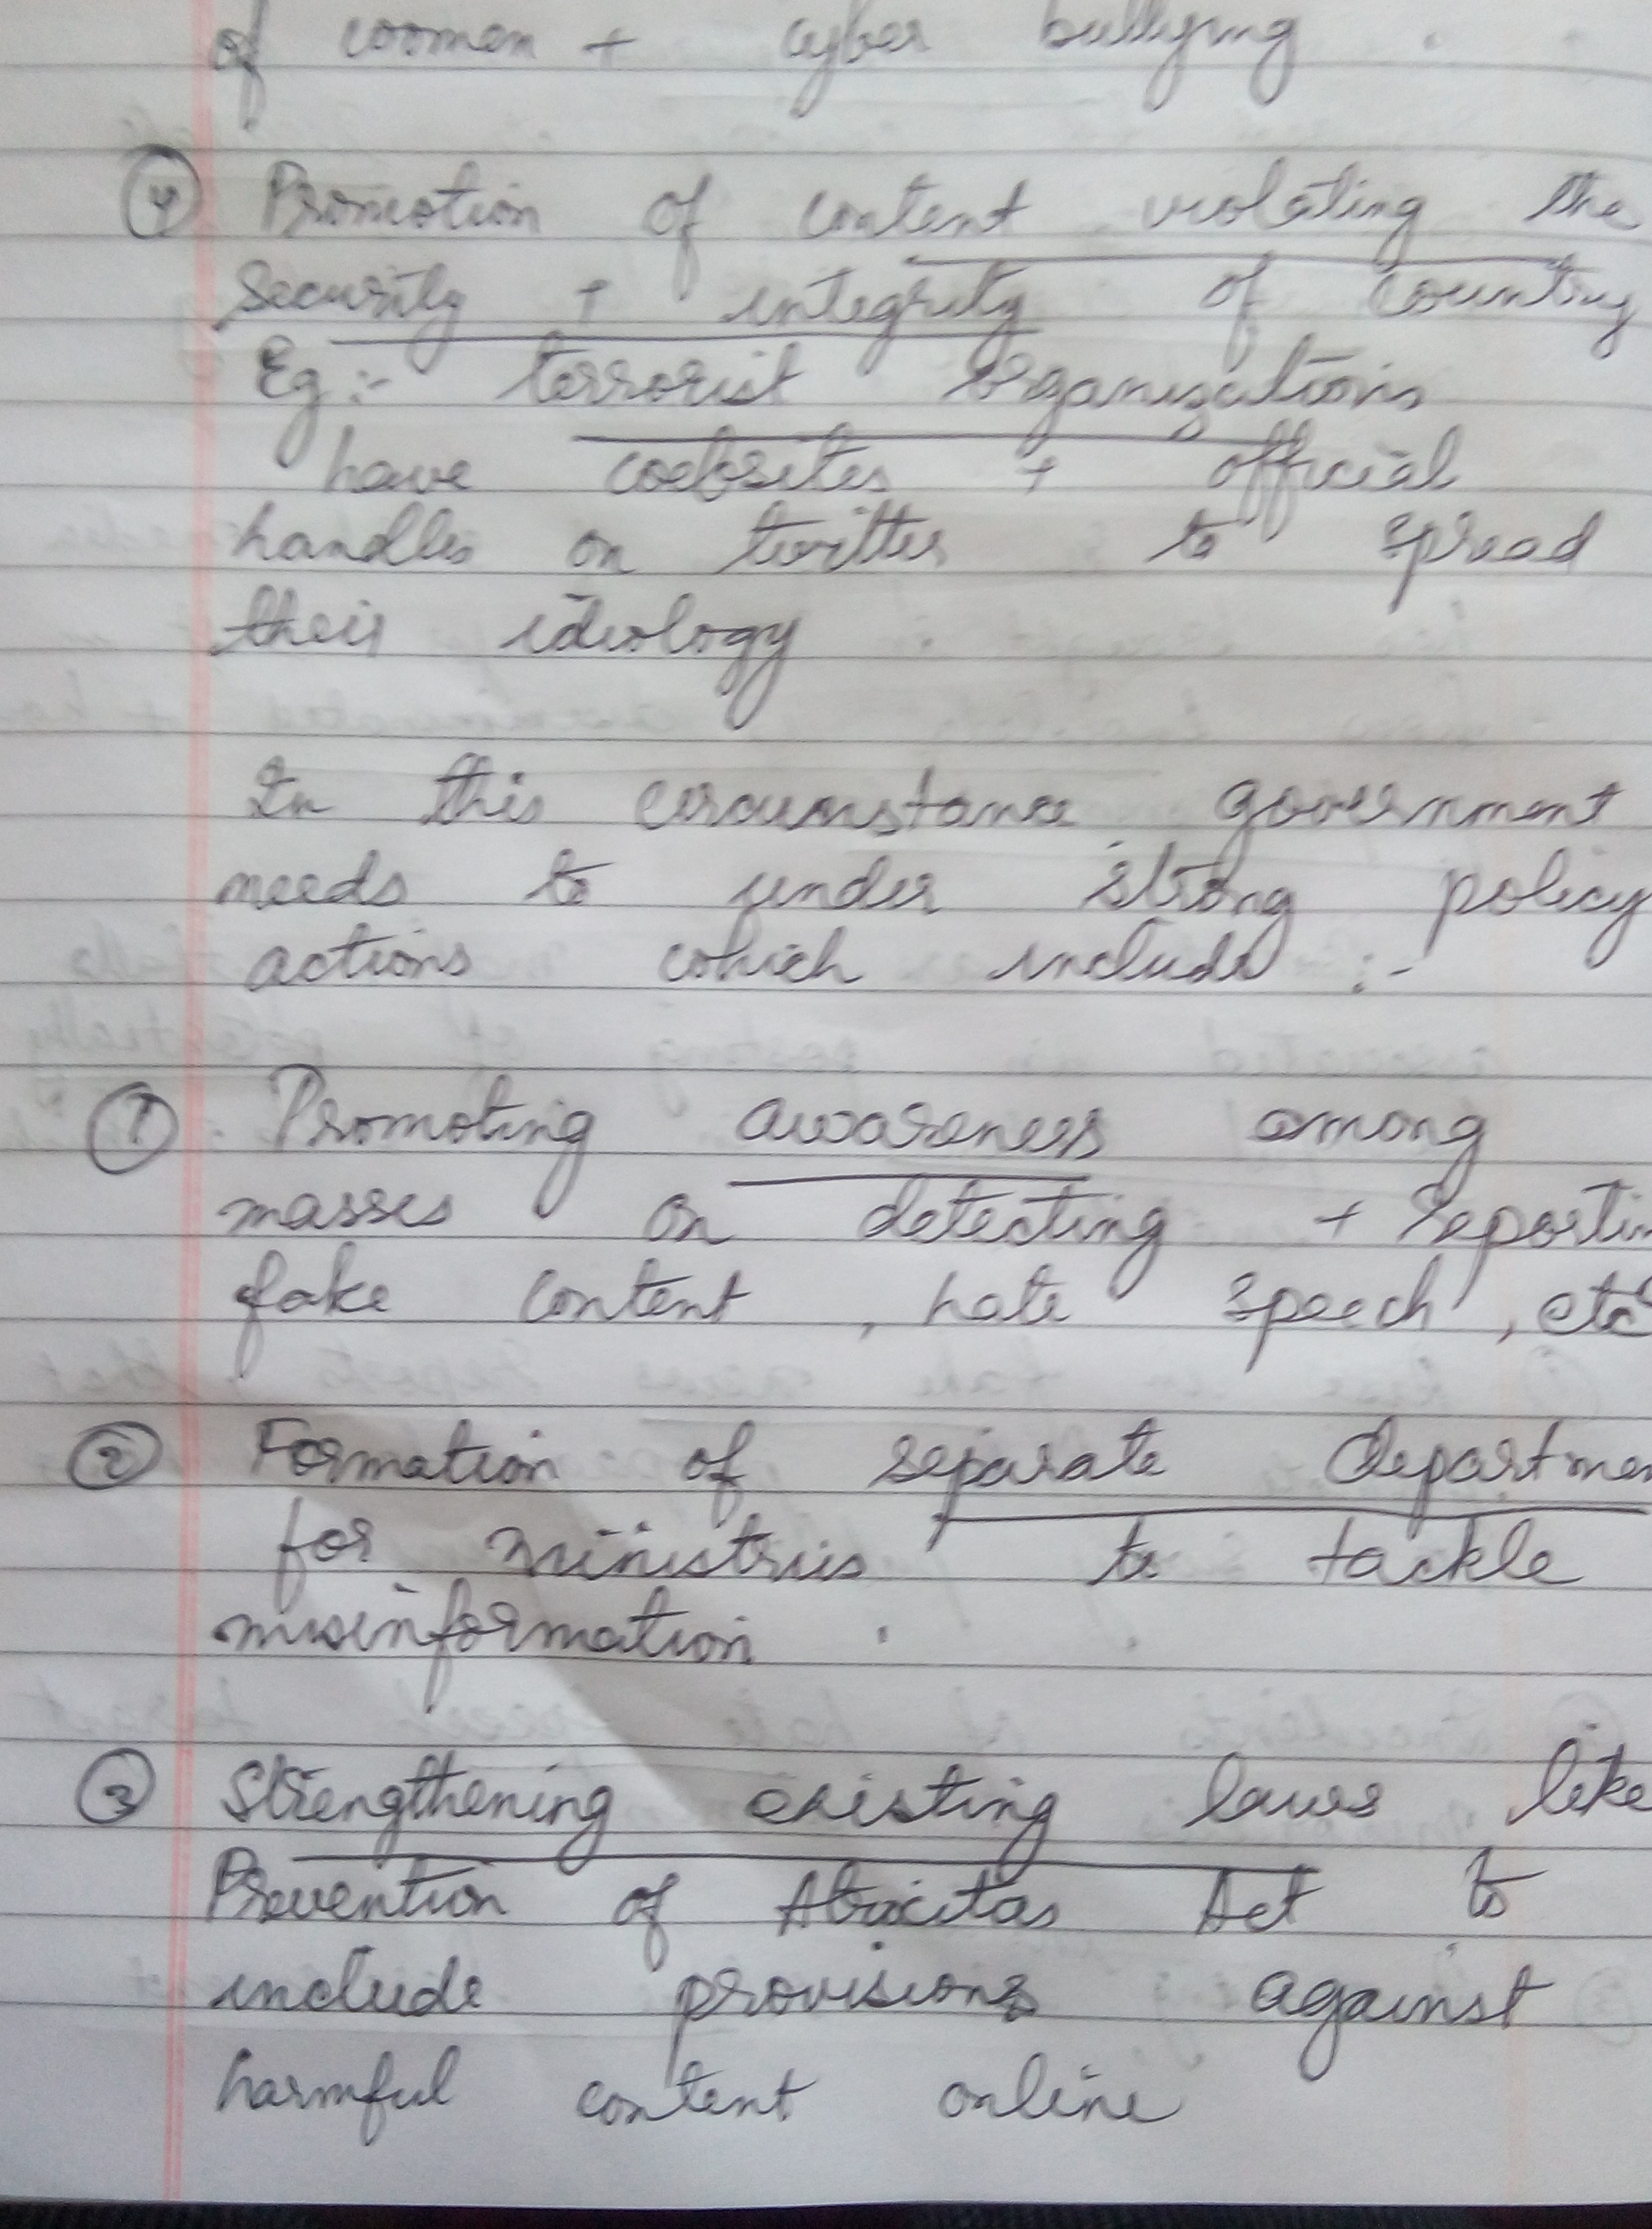 of women + cyber bullying.
④ Promotion of content violating the
security + integrity of country
Eg:- terrorist organizations
have websites + official
handles on twitter to spread
their ideology
In this circumstance government
needs to under strong policy
actions which include :-
① Promoting awareness among
masses on detecting + reportin
fake content, hate speech, etc
② Formation of separate departmen
for ministries to tackle
misinformation.
③ Strengthening existing laws like
Prevention of Atrocitas Act to
include provisions against
harmful content online